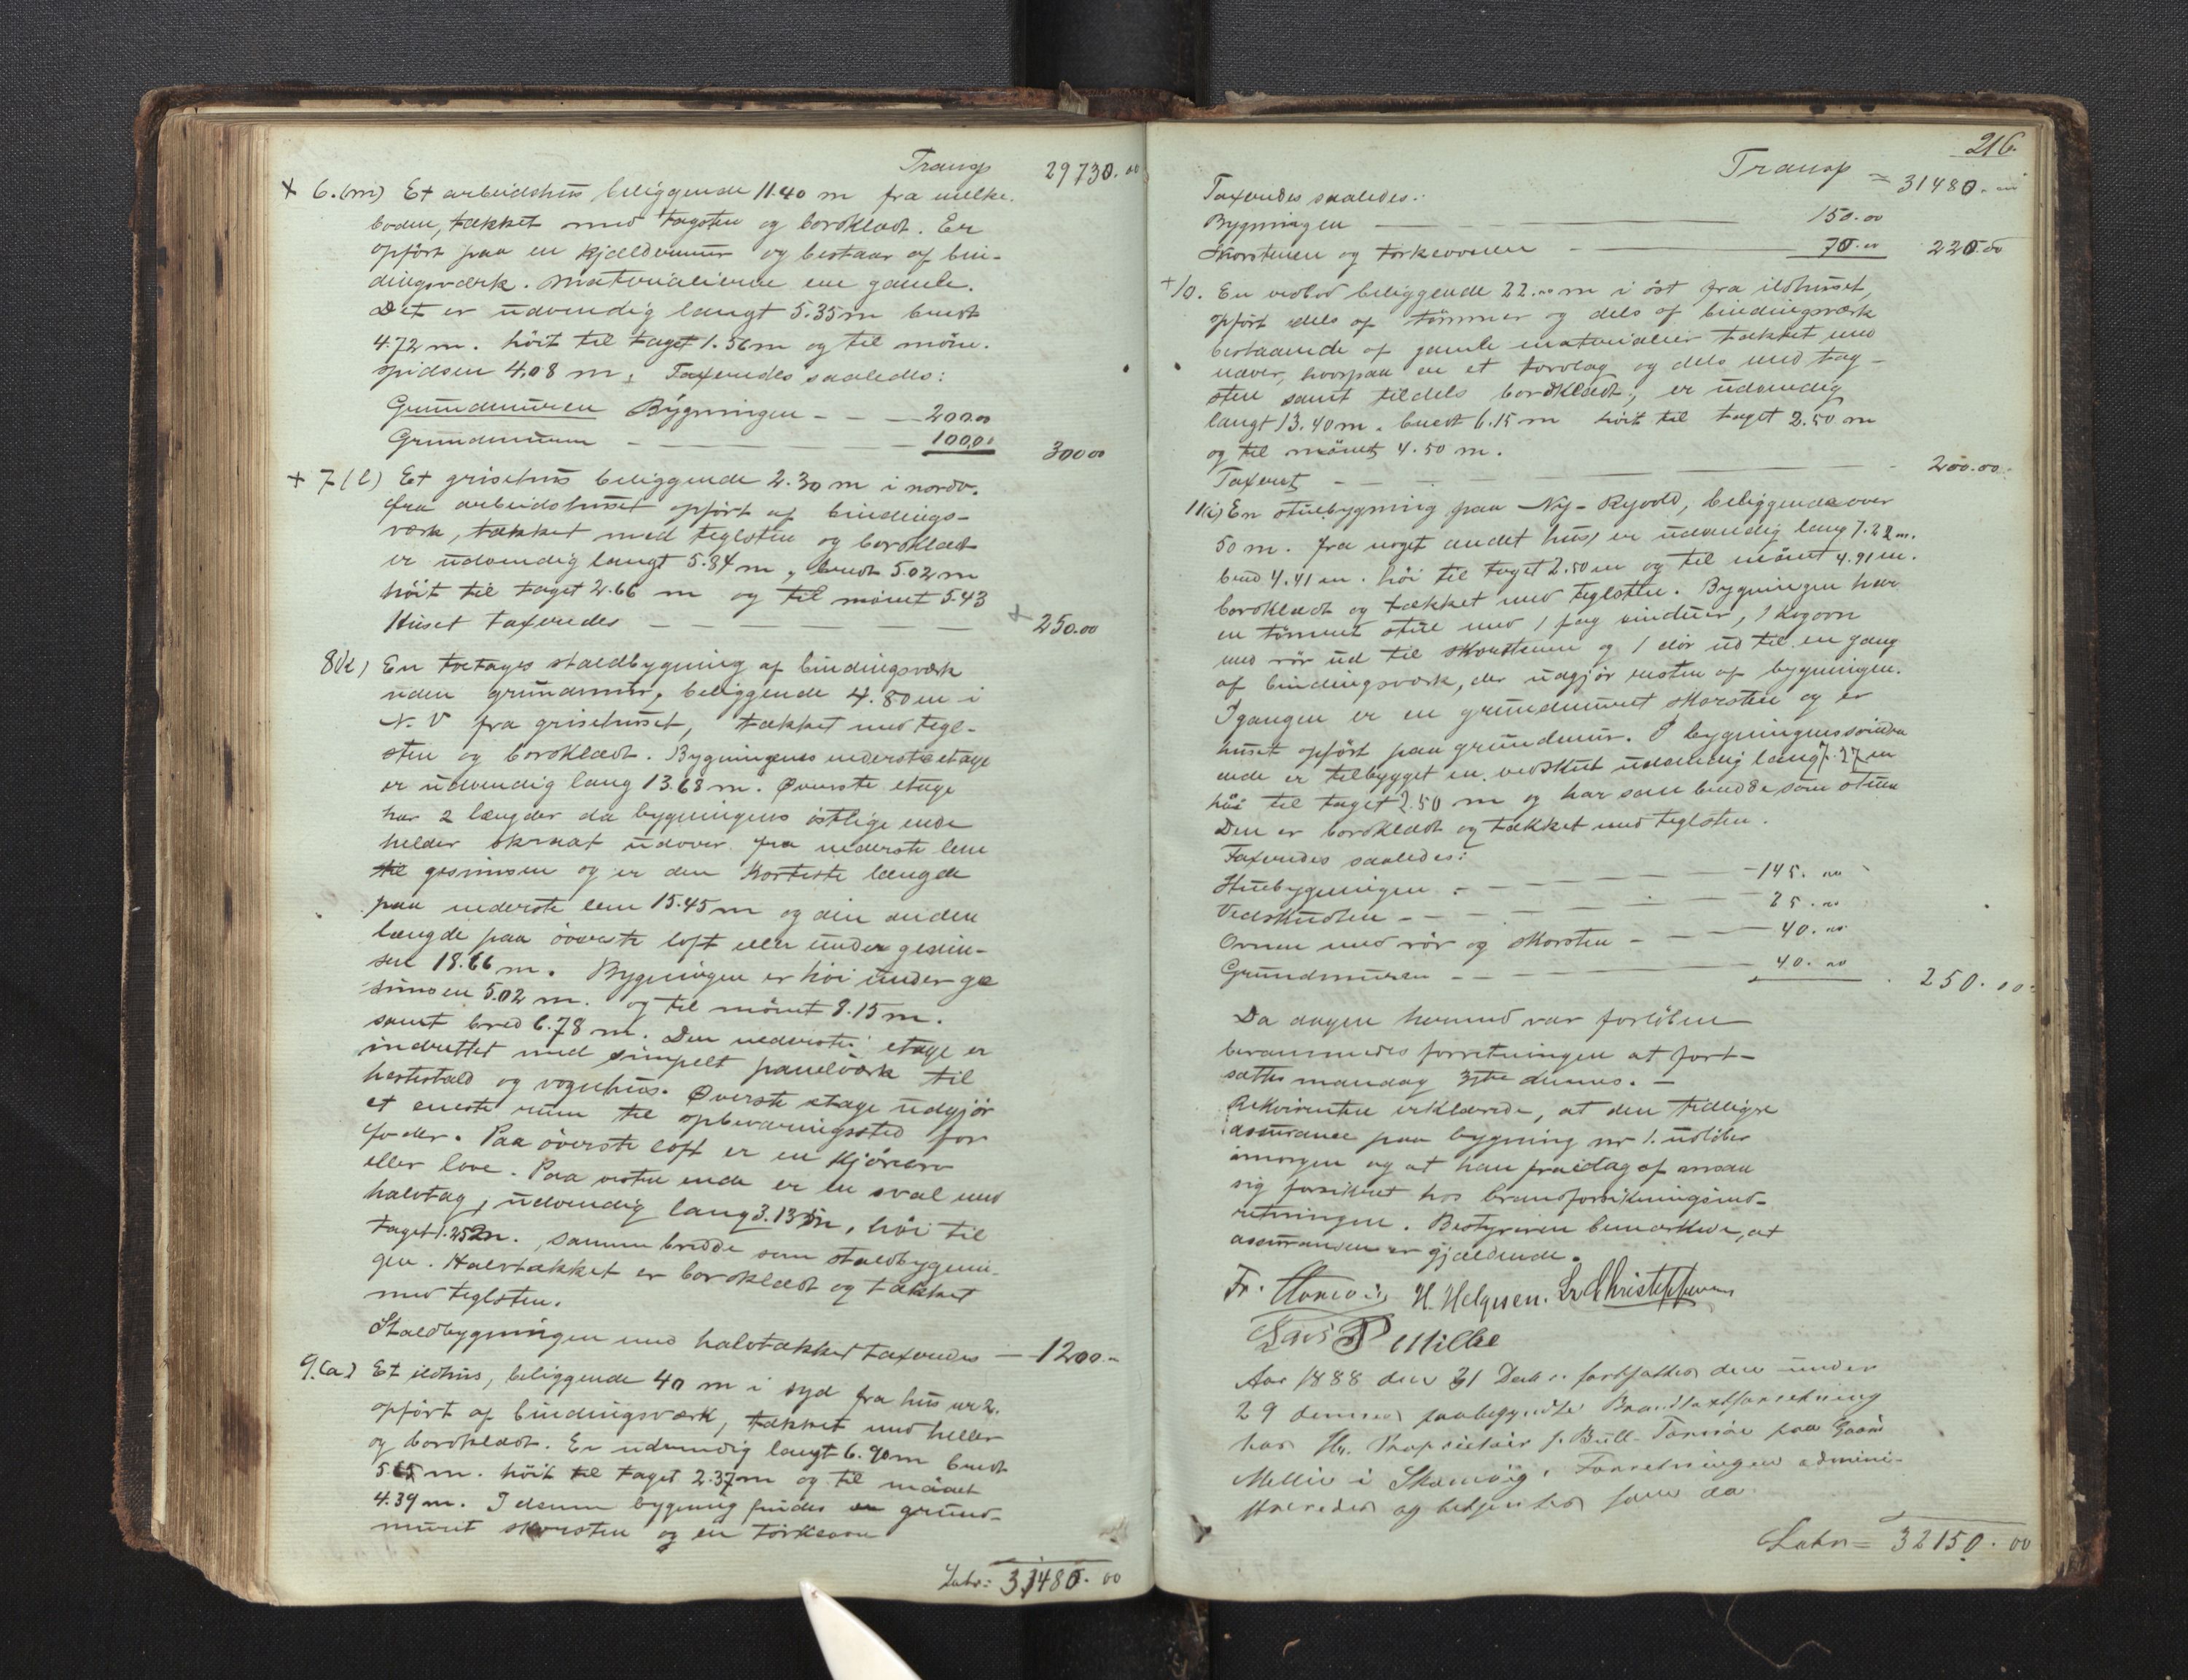 Transp 29730.00
6.(m) Et arbeidshus beliggende 11.40 m fra melke-
boden, tækket med tagsten og bordklædt. Er
opført paa en kjældermur og bestaar af bin-
dingsværk. Materialierne ere gamle.
Det er udvendig langt 5.35 m bredt
4.72 m. høit til taget 1.56 m og til møne-
spidsen 4,08 m. Taxeredes saaledes:
Grundmuren Bygningen - - - 200.00
Grundmuren - 100,00 300 00
+ 7(l) Et grisehus beliggende 2.30 m i nordv.
fra arbeidshuset opført af bindings-
værk, tækket med teglsten og bordklædt
er udvendig langt 5.84 m, bredt 5.02 m
høit til taget 2.66 m og til mønet 5.43
Huset taxeredes 250.00
8(k) En toetages staldbygning af bindingsværk
uden grundmur, beliggende 4.80 m i
N. V fra grisehuset, tækket med tegl-
sten og bordklædt. Bygningens underste etage
er udvendig lang 13.68 m. Øverste etage
har 2 længder da bygningens østlige ende
helder skraat udover fra nederste lem
til gesimsen og er den korteste længde
paa nederste lem 15.45 m og den anden
længde paa øverste loft eller under gesim-
sen 18.66 m. Bygningen er høi under ge
simsen 5.02 m. og til mønet 8.15 m.
samt bred 6.78 m. Den nederste etage er
indrettet med simpelt panelværk til
hestestald og vognhus. Øverste etage udgjør
et eneste rum til opbevaringssted for
foder. Paa øverste loft er en kjørebro
eller love. Paa vestre ende er en sval med
halvtag, udvendig lang 3.13 m, høi til
taget 1.252 m., samme bredde som staldbygnin-
gen. Halvtækket er bordklædt og tækket
med teglsten.
Staldbygningen med halvtækket taxeredes - 1200.-
9.(a) Et ildhus, beliggende 40 m i syd fra hus nr 2.
opført af bindingsværk, tækket med heller
og bordklædt. Er udvendig langt 6.90 m bredt
5.65 m. høit til taget 2.37 m og til mønet
4.39 m. I denne bygning findes en grund-
muret skorsten og en tørkeovn
Latr: 31480.00
216.
Transp = 31480.00
Taxeredes saaledes:
Bygningen 150.00
Skorstenen og tørkeovnen 70.00 220.00
+10. En vedbod beliggende 22.00 m i øst fra ildhuset,
opført dels af tømmer og dels af bindingsværk
bestaaende af gamle materialier tækket med
næver, hvorpaa er et torvlag og dels med tag-
sten samt tildels bordklædt, er udvendig
langt 13.40 m. bredt 6.15 m høit til taget 2.50 m
og til mønet 4.50 m.
Taxeret 200.00
11(i) En stuebygning paa Ny-Ryvold, beliggende over
50 m. fra noget andet hus, er udvendig lang 7.22 m.
bred 4.41 m. høi til taget 2.50 m og til mønet 4.91 m.
bordklædt og tækket med teglsten. Bygningen har
en tømret stue med 1 fag vinduer, 1 kogovn
med rør ud til skorstenen og 1 dør ud til en gang
af bindingsværk, der udgjør resten af bygningen.
I gangen er en grundmuret skorsten og er
huset opført paa grundmur. I bygningens søndre
ende er tilbygget en vedskut udvendig lang 7.27 m
høi til taget 2.50 m og har som bredde som stuen
Den er bordklædt og tækket med teglsten.
Taxeredes saaledes:
Stuebygningen 145.00
Vedskudten 25.00
Ovnen med rør og skorsten 40.00
Grundmuren 40.00 250.00
Da dagen hermed var forløben
berammedes forretningen at fort-
sættes mandag 31te dennes. -
Rekvirenten erklærede, at den tidligere
assurance paa bygning nr 1. udløber
imorgen og at han fra idag af ansaa
sig forsikret hos brandforsikringsind-
retningen. Bestyreren bemærkede, at
assurancen er gjældende.
H. Helgesen. Christoffersen
Lars P Milde
Aar 1888 den 31 Decbr. fortsattes den under
29 dennes paabegyndte Brandtaxtforretning
hos Hr. Proprietair J. Bull Tornøe paa Gaard
i Skanevig. Forretningen admini-
streredes og betjentes som da
Latr = 32150.00